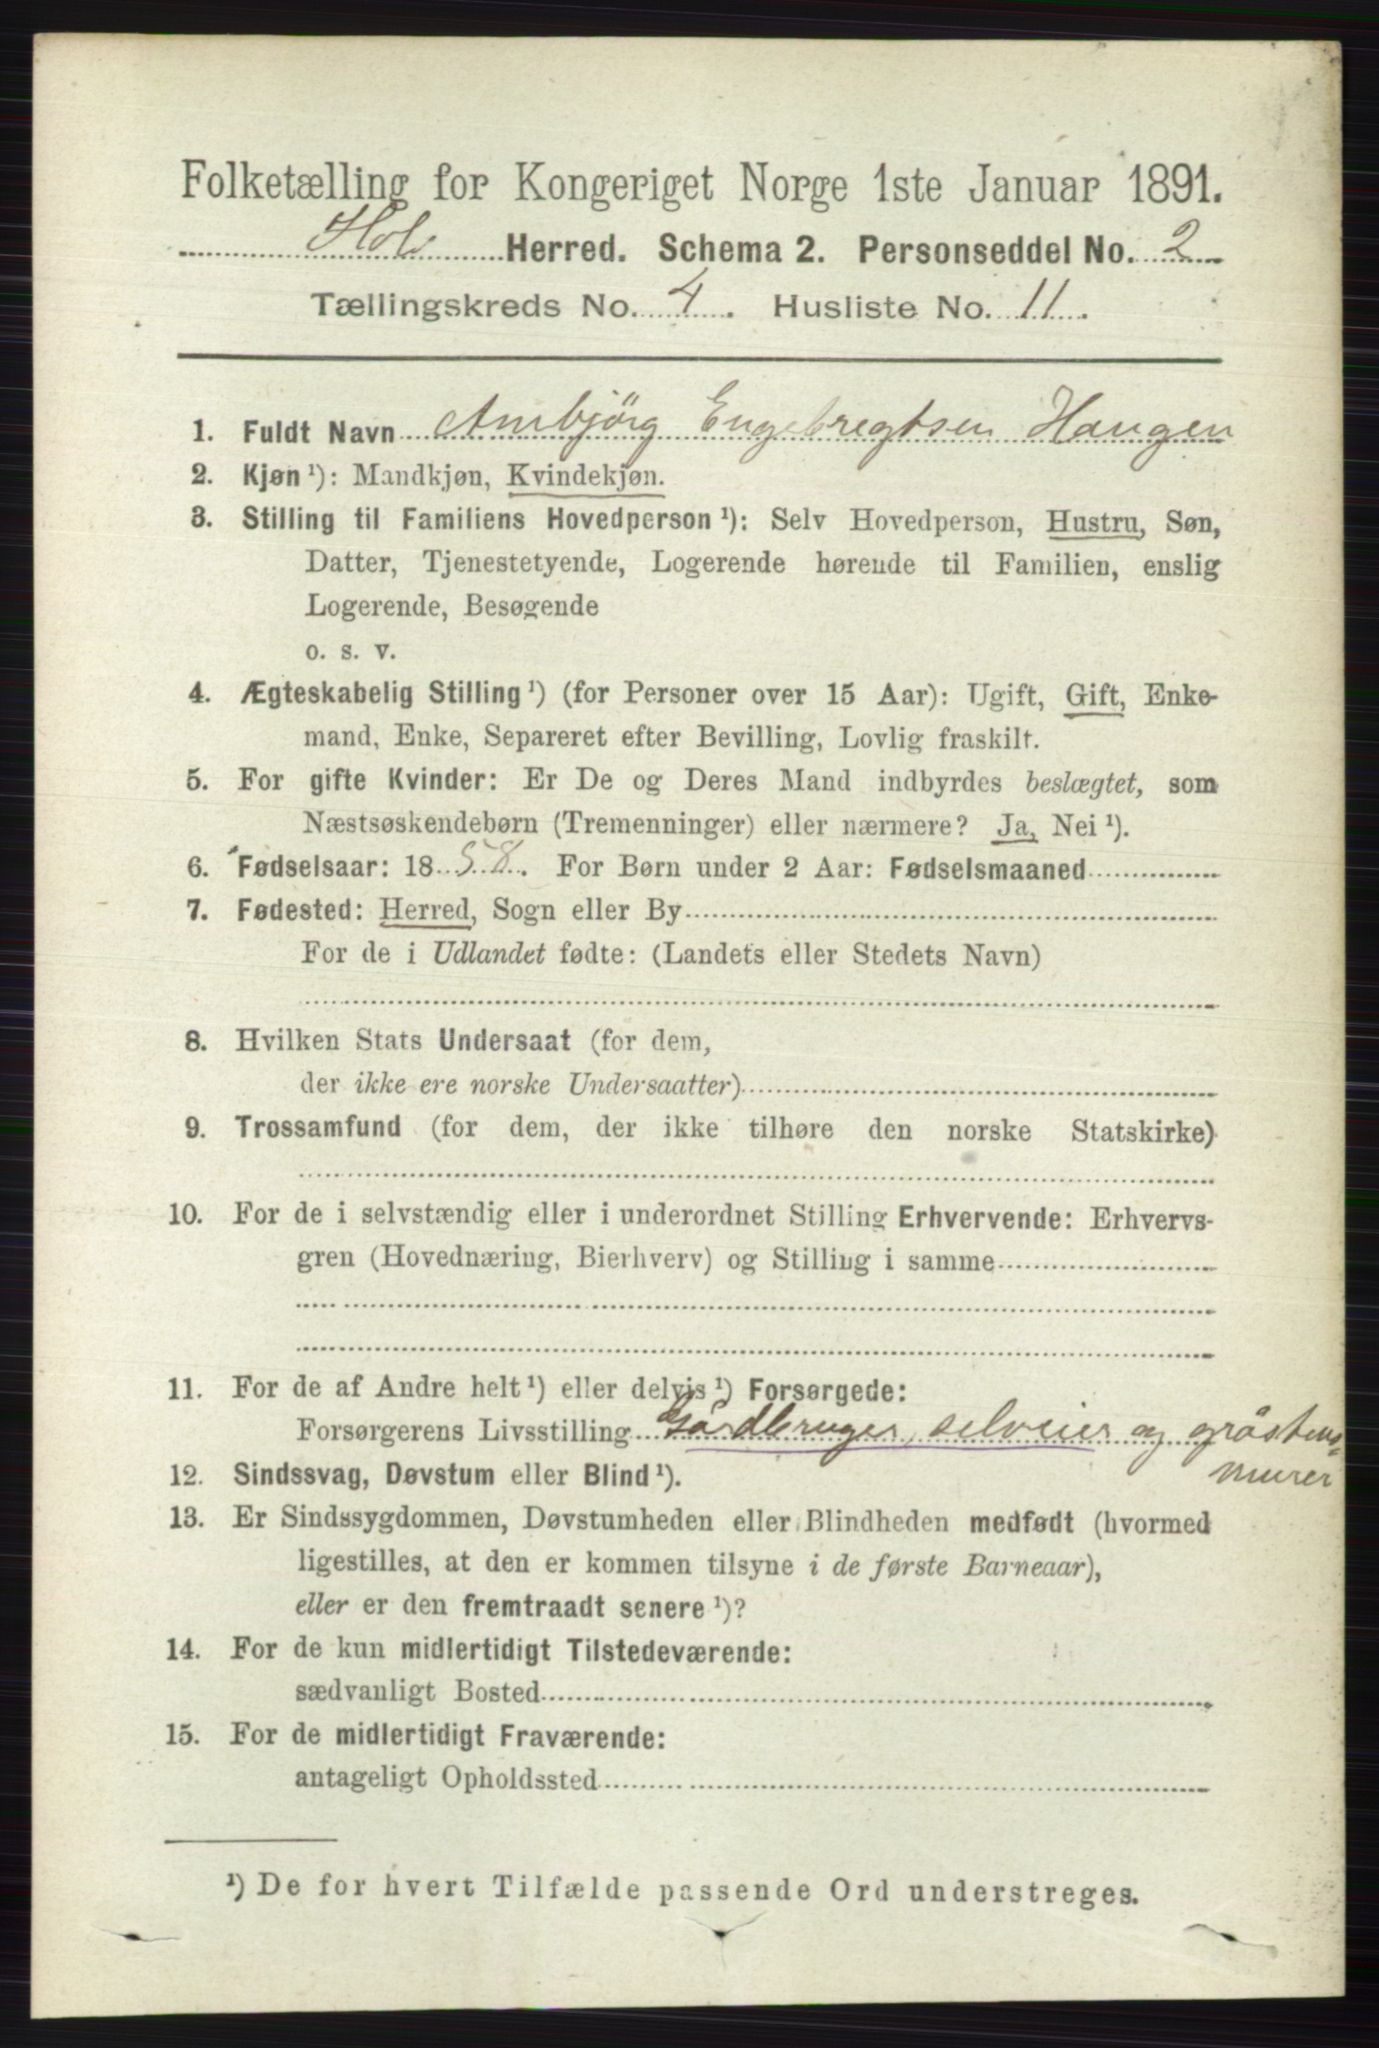 Folketælling for Kongeriget Norge 1ste Januar 1891.
Hols Herred. Schema 2. Personseddel No. 2
Tællingskreds No. 4. Husliste No. 11.
1. Fuldt Navn Ambjörg Engebregtsen Haugen
2. Kjøn¹): Mandkjøn, Kvindekjøn.
3. Stilling til Familiens Hovedperson¹): Selv Hovedperson, Hustru, Søn,
Datter, Tjenestetyende, Logerende hørende til Familien, enslig
Logerende, Besøgende
o. s. v.
4. Ægteskabelig Stilling¹) (for Personer over 15 Aar): Ugift, Gift, Enke-
mand, Enke, Separeret efter Bevilling, Lovlig fraskilt.
5. For gifte Kvinder: Er De og Deres Mand indbyrdes beslægtet, som
Næstsøskendebørn (Tremenninger) eller nærmere? Ja, Nei¹).
6. Fødselsaar: 1858. For Børn under 2 Aar: Fødselsmaaned
7. Fødested: Herred, Sogn eller By
For de i Udlandet fødte: (Landets eller Stedets Navn)
8. Hvilken Stats Undersaat (for dem,
der ikke ere norske Undersaatter)
9. Trossamfund (for dem, der ikke tilhøre den norske Statskirke)
10. For de i selvstændig eller i underordnet Stilling Erhvervende: Erhvervs-
gren (Hovednæring, Bierhverv) og Stilling i samme
11. For de af Andre helt¹) eller delvis¹) Forsørgede:
Forsørgerens Livsstilling Gårdbruger, selveier og gråstens-
murer
12. Sindssvag, Døvstum eller Blind¹).
13. Er Sindssygdommen, Døvstumheden eller Blindheden medfødt (hvormed
ligestilles, at den er kommen tilsyne i de første Barneaar),
eller er den fremtraadt senere¹)?
14. For de kun midlertidigt Tilstedeværende:
sædvanligt Bosted
15. For de midlertidigt Fraværende:
antageligt Opholdssted
¹) De for hvert Tilfælde passende Ord understreges.